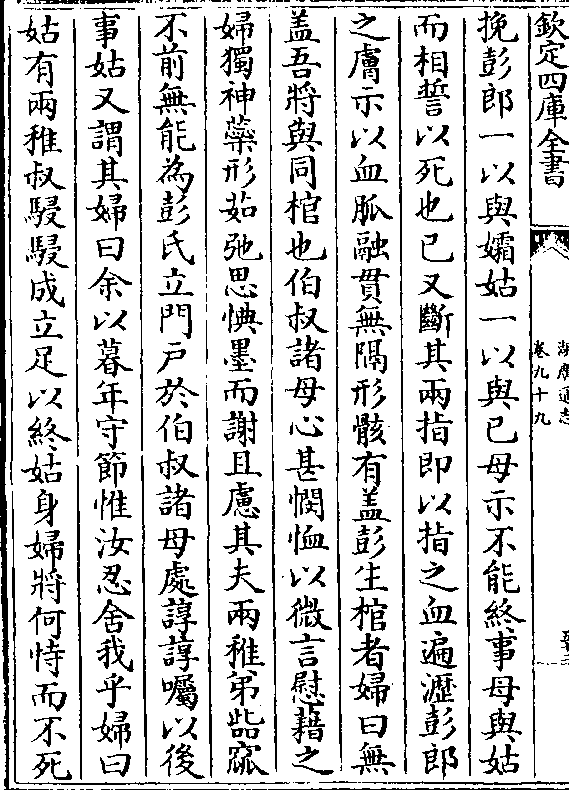 欽定四庫全書
湖廣通志
卷九十九
挽彭郎一以與孀姑一以與已母示不能終事母與姑
而相誓以死也已又斷其兩指即以指之血遍瀝彭郎
之膚示以血脈融貫無隔形骸有盖彭生棺者婦曰無
盖吾將與同棺也伯叔諸母心甚憫恤以微言慰藉之
婦獨神蘂形茹弛思惓墨而謝且慮其夫兩稚弟呰窳
不前無能為彭氏立門戶於伯叔諸母處諄諄囑以後
事姑又謂其婦曰余以暮年守節惟汝忍舍我乎婦曰
姑有兩稚叔駸駸成立足以終姑身婦將何恃而不死